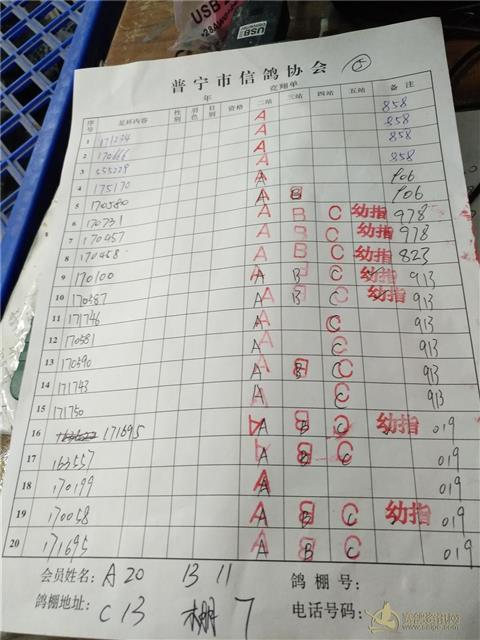 USB
普宁市信鸽协会 ⑤
年 竞翔单
序号 足环内容 性别 羽色 目别 资格 二站 三站 四站 五站 备注
1 171234 A 858
2 170666 A 858
3 555229 A 858
4 175170 A 858
5 170580 A B 906
6 170731 A B C 幼指 978
7 170457 A B C 幼指 978
8 170458 A B C 幼指 823
9 170100 A B C 幼指 913
10 170587 A B C 幼指 913
11 171746 A C 913
12 170581 A C 913
13 170590 A B C 913
14 171743 A C 913
15 171750 A C 913
16 171695 A B C 幼指 019
17 163557 A B C 019
18 170199 A 019
19 170058 A B C 幼指 019
20 171695 A B C 019
会员姓名: A20 B 11 鸽棚号:
鸽棚地址: C13 棚 7 电话号码:
赛鸽资讯网